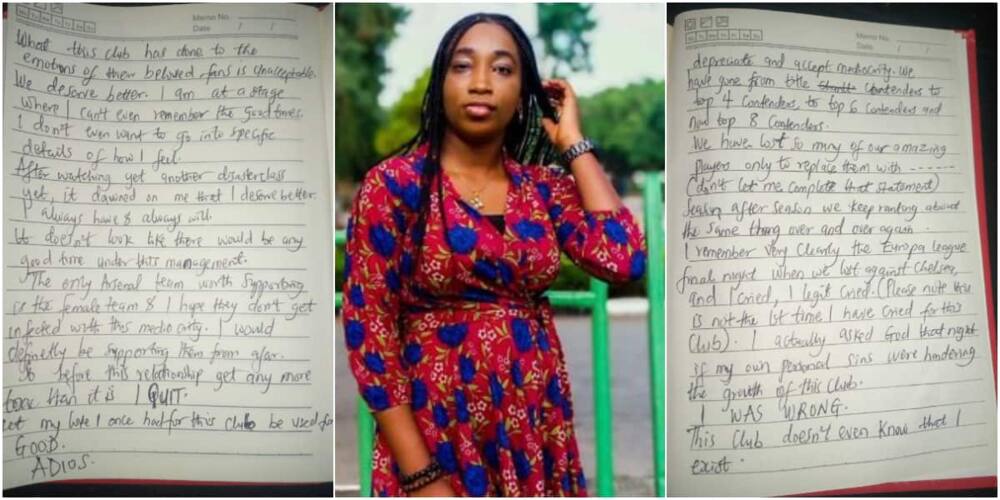 Memo No.
Date / /
What this club has done to the
emotions of their beloved fans is unacceptable.
We deserve better. I am at a stage
where I can't even remember the good times.
I don't even want to go into specific
details of how I feel.
After watching yet another disasterclass
yet, it dawned on me that I deserve better.
I always have & always will.
It doesn't look like there would be any
good time under this management.
The only Arsenal team worth supporting
is the female team & I hope they don't get
infected with this mediocrity. I would
definetly be supporting them from afar.
So before this relationship get any more
toxic than it is I QUIT.
Let my love I once had for this club be used for
GOOD.
ADIOS.
Memo No.
Date / /
depreciate and accept mediocrity. We
have gone from title contenders to
top 4 contenders, to top 6 contenders and
now top 8 contenders.
We have lost so many of our amazing
players only to replace them with ------
(don't let me complete that statement)
Season after season we keep ranting about
the same thing over and over again.
I remember very clearly the Europa league
final night when we lost against Chelsea,
and I cried, I legit cried. (Please note this
is not the 1st time I have cried for this
club). I actually asked God that night
if my own personal sins were hindering
the growth of this club.
I WAS WRONG.
This club doesn't even know that I
exist.